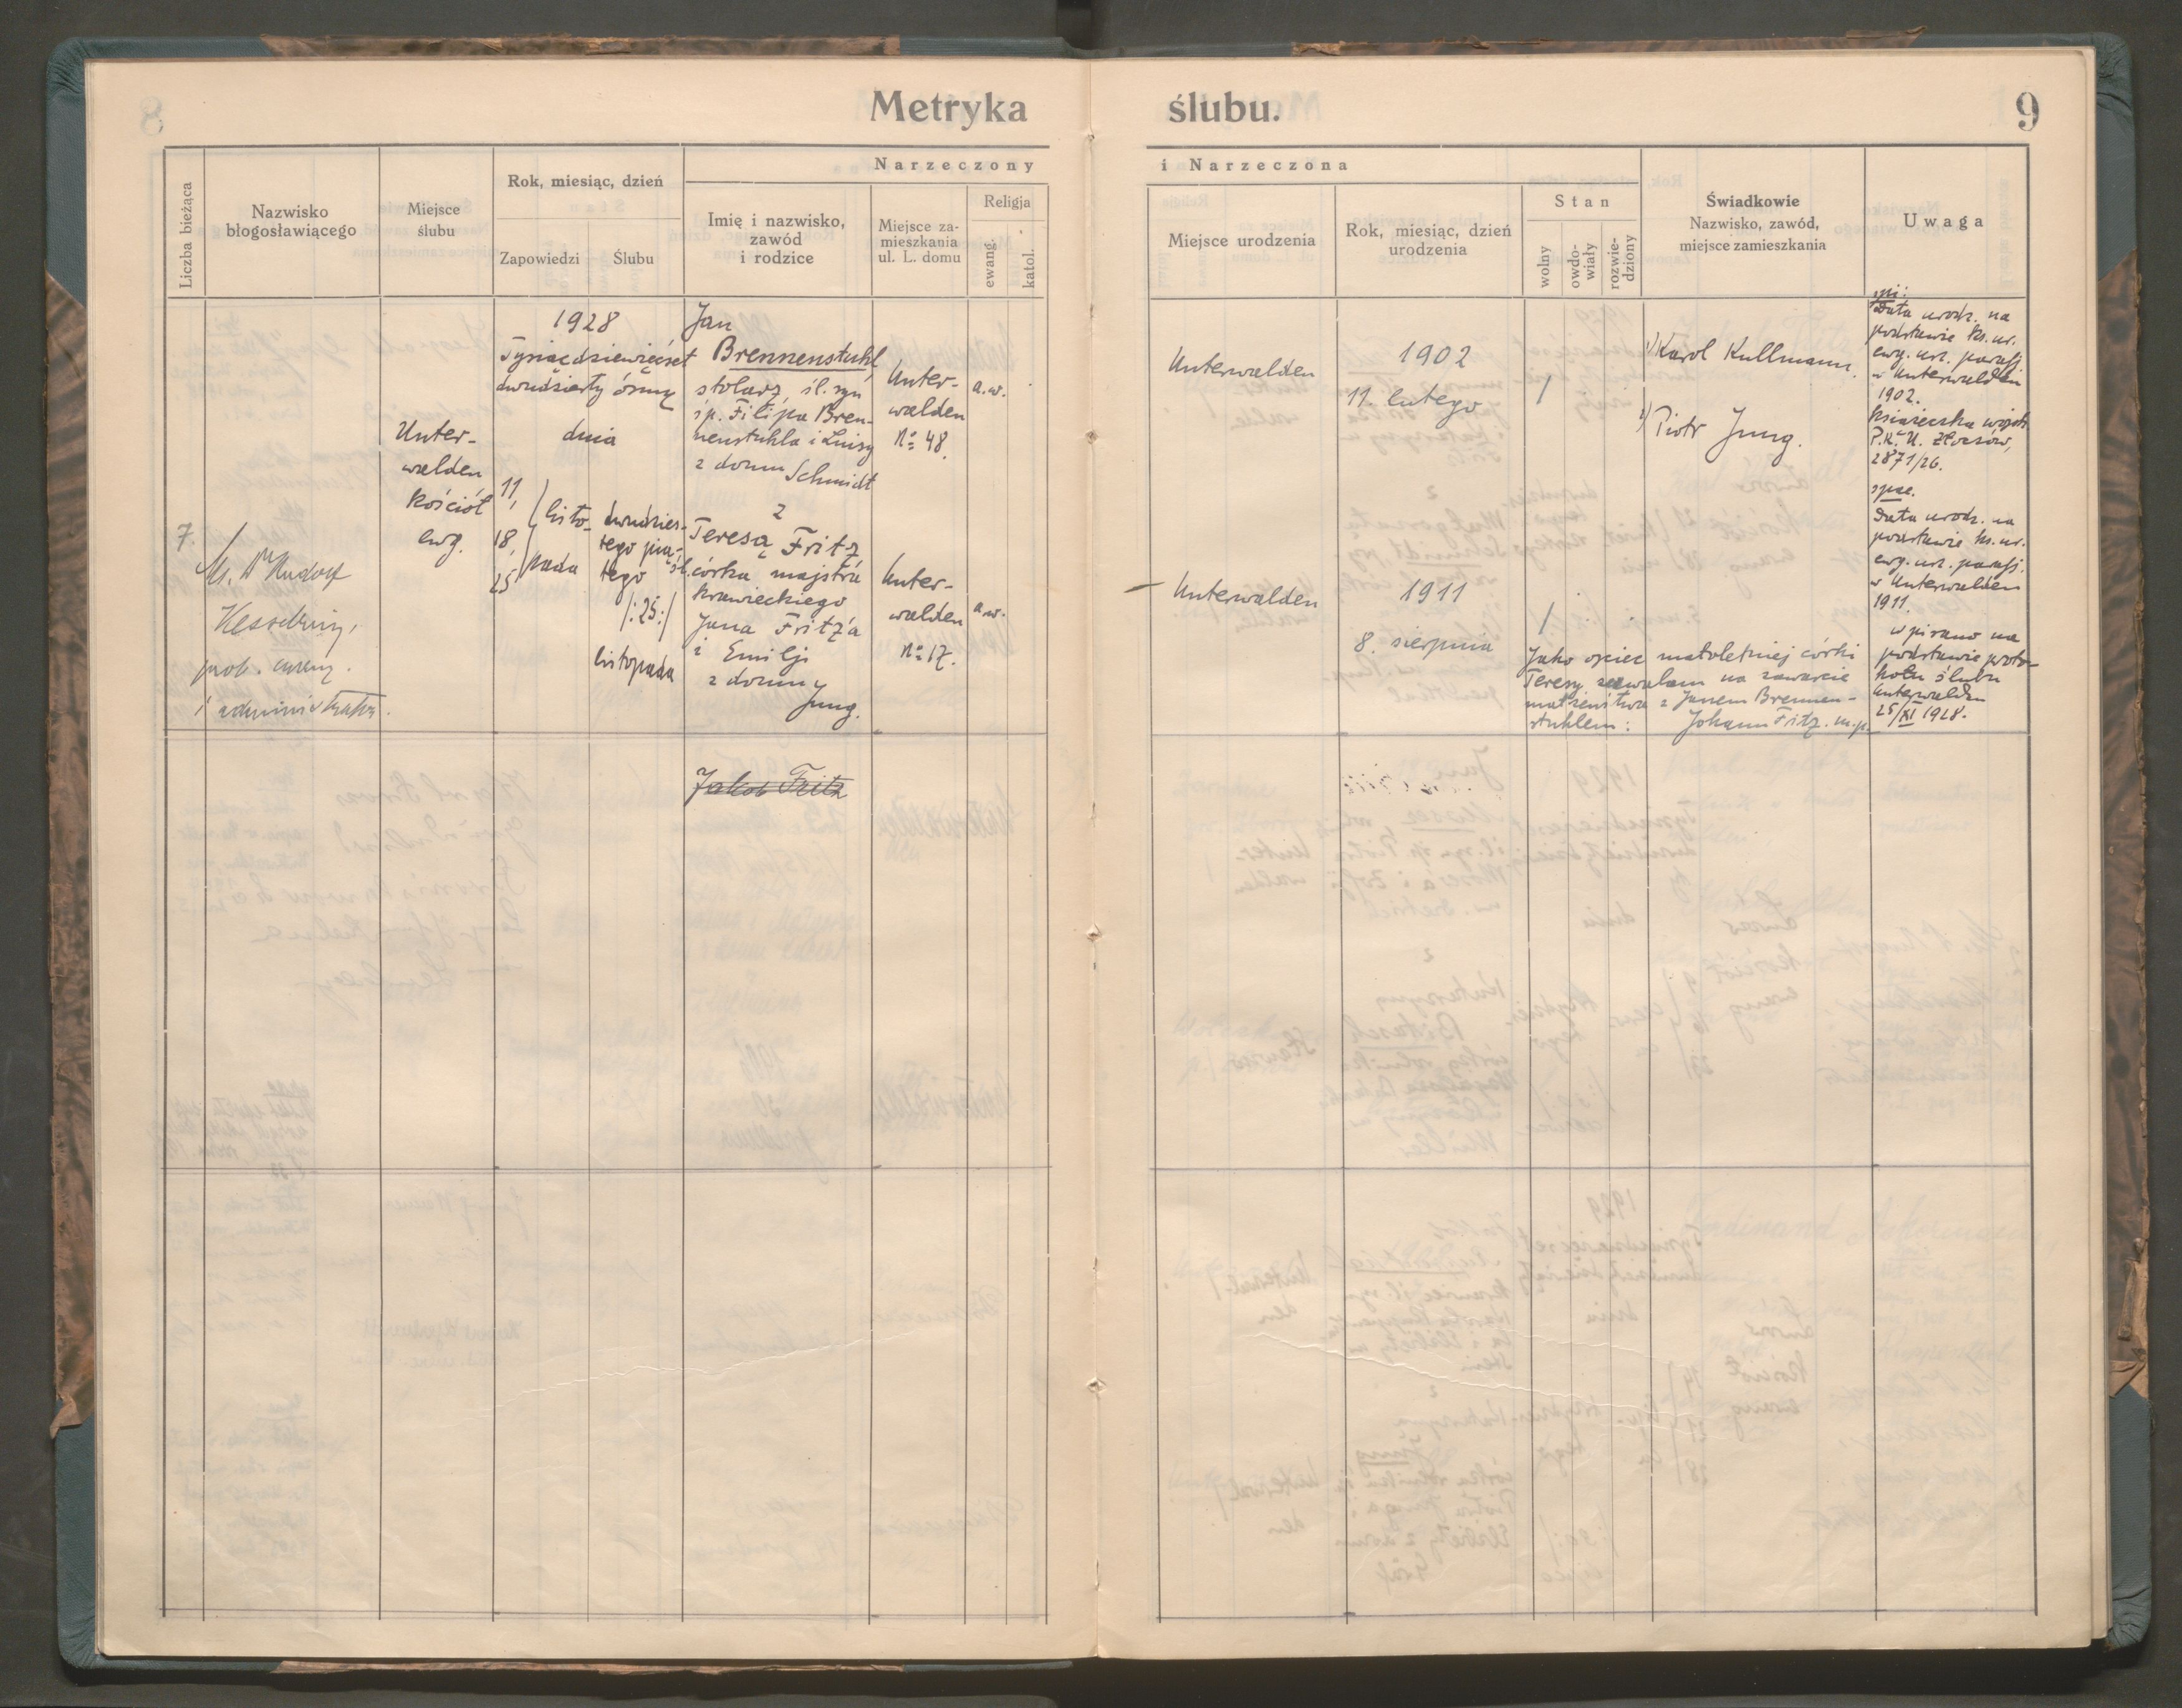 Metryka ślubu.
9
Liczba bieżąca
Nazwisko
błogosławiącego
Miejsce
ślubu
Rok, miesiąc, dzień
Zapowiedzi
Ślubu
Narzeczony
Imię i nazwisko,
zawód
i rodzice
Miejsce za-
mieszkania
ul. L. domu
Religja
ewang.
katol.
i Narzeczona
Miejsce urodzenia
Rok, miesiąc, dzień
urodzenia
Stan
wolny
owdo-
wiały
rozwie-
dziony
Świadkowie
Nazwisko, zawód,
miejsce zamieszkania
Uwaga
7.
Ks. Dr Rudolf
Kesselring,
prob. ewang.
i administrator.
Unter-
walden,
Kościół
ewg.
1928
Tysiącdziewięćset
dwudziesty ósmy
dnia
11,
18,
25
listo-
pada
dwudzies-
tego pią-
tego
/:25:/
listopada
Jan
Brennenstuhl,
stolarz, śl. syn
śp. Filipa Bren-
nenstuhla i Luisy
z domu Schmidt
z
Teresą Fritz
śl. córka majstra
krawieckiego
Jana Fritz'a
i Emilji
z domu
Jung.
Unter-
walden
No 48.
a.w.
Unter-
walden
No 17.
a.w.
Jakob Fritz
Unterwalden
1902
11. lutego
1
1) Karol Kullmann.
2) Piotr Jung.
Unterwalden
1911
8. sierpnia
1
Jako ojciec małoletniej córki
Teresy zezwalam na zawarcie
małżeństwa z Janem Brennen-
stuhlem: Johann Fritz. m.p.
Data urodz. na
podstawie ks. ur.
ewg. urz. parafj.
w Unterwalden
1902.
Książeczka wojsk.
P.K.U. Złoczów,
2871/26.
Data urodz. na
podstawie ks. ur.
ewg. urz. parafj.
w Unterwalden
1911.
wpisano na
podstawie proto-
kołu ślubu
Unterwalden
25/XI 1928.